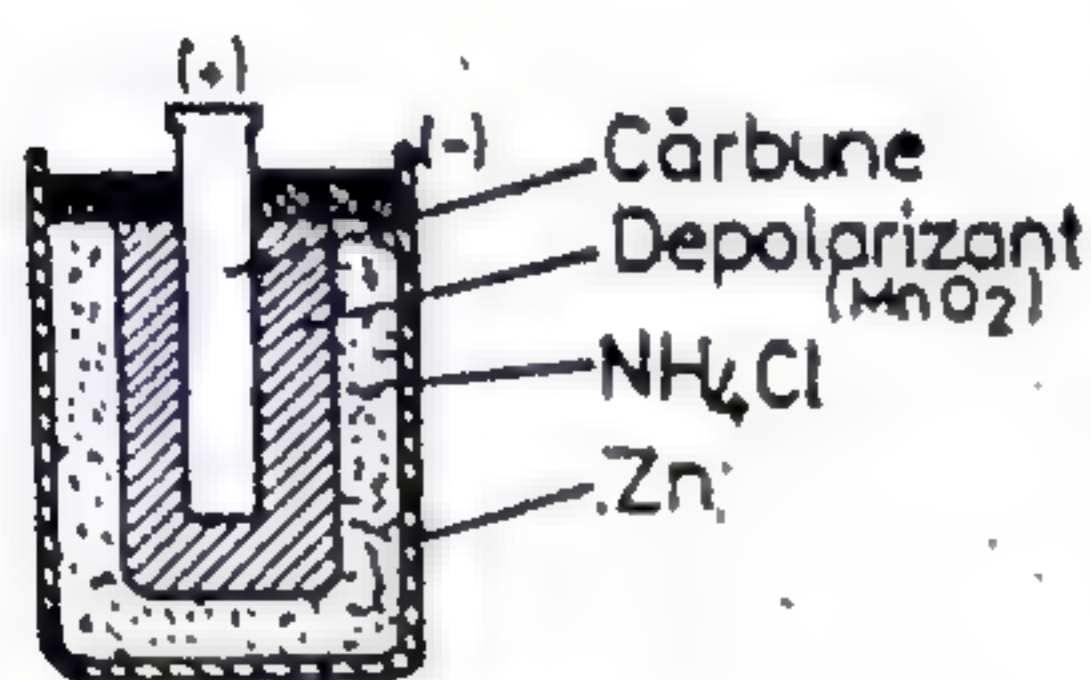 (+)
(-)
Cărbune
Depolarizant
(MnO2)
NH4Cl
Zn